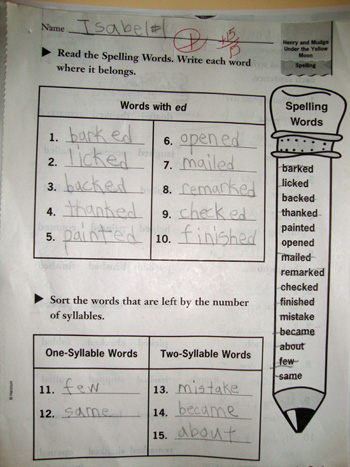 Name Isabel #1
+15
15
Henry and Mudge
Under the Yellow
Moon
Spelling
Read the Spelling Words. Write each word
where it belongs.
Words with ed
1. barked
2. licked
3. backed
4. thanked
5. painted
6. opened
7. mailed
8. remarked
9. checked
10. finished
Spelling
Words
barked
licked
backed
thanked
painted
opened
mailed
remarked
checked
finished
mistake
became
about
few
same
Sort the words that are left by the number
of syllables.
One-Syllable Words
11. few
12. same
Two-Syllable Words
13. mistake
14. became
15. about
© Harcourt